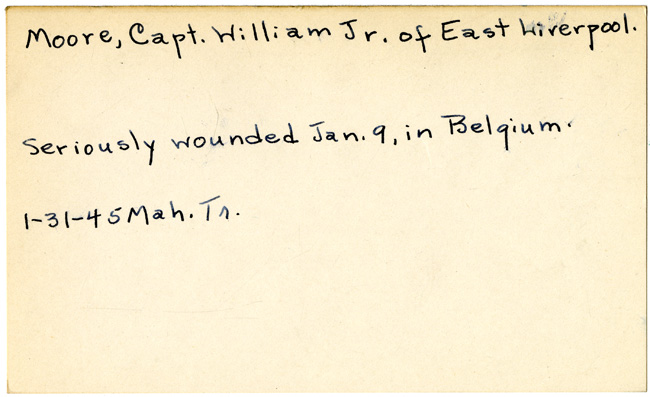 Moore, Capt. William Jr. of East Liverpool.
Seriously wounded Jan. 9, in Belgium.
1-31-45 Mah. Tr.